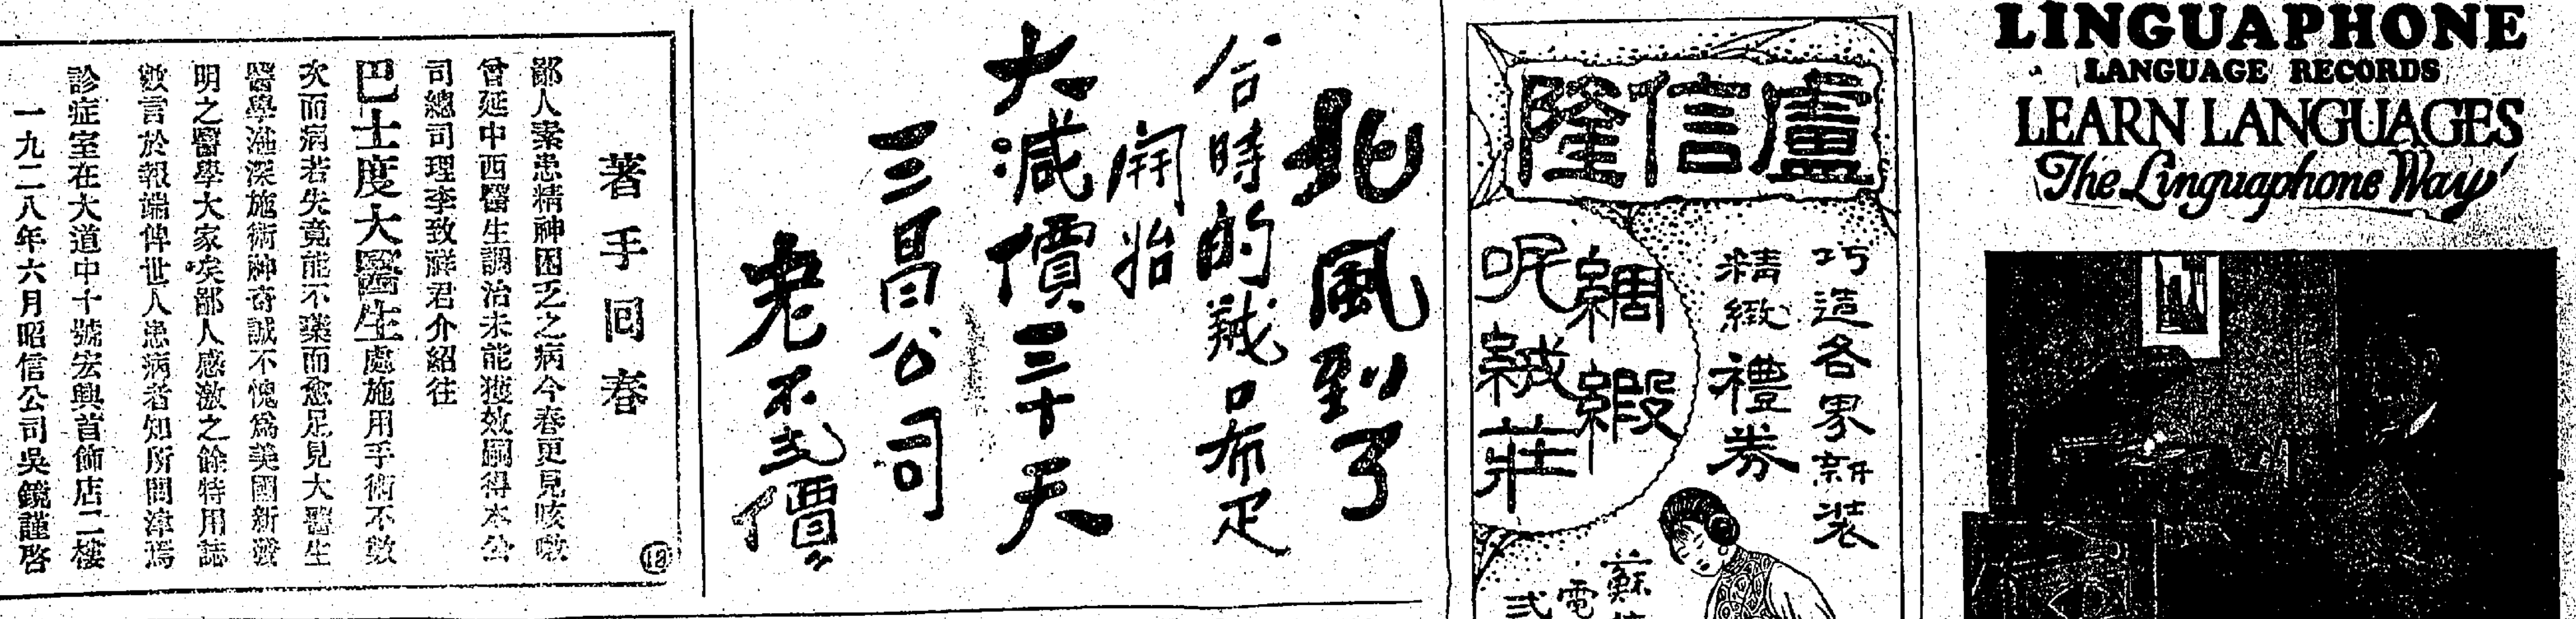 LINGUAPHONE
LANGUAGE RECORDS
LEARN LANGUAGES
The Linguaphone Way
盧信隆
巧造各界新裝
精緻禮券
綢緞
呢絨莊
蘇
電
弍
北風到了
合時的羢口布疋
開始
大減價三十天
三昌公司
老不弍價
著手回春
鄙人素患精神困乏之病今春更見咳嗽
曾延中西醫生調治未能獲效嗣得本公
司總司理李致祥君介紹往
巴士度大醫生處施用手術不數
次而病若失竟能不藥而愈足見大醫生
醫學湛深施術神奇誠不愧爲美國新發
明之醫學大家矣鄙人感激之餘特用誌
數言於報端俾世人患病者知所問津焉
診症室在大道中十號宏興首飾店二樓
一九二八年六月昭信公司吳鏡謹啓